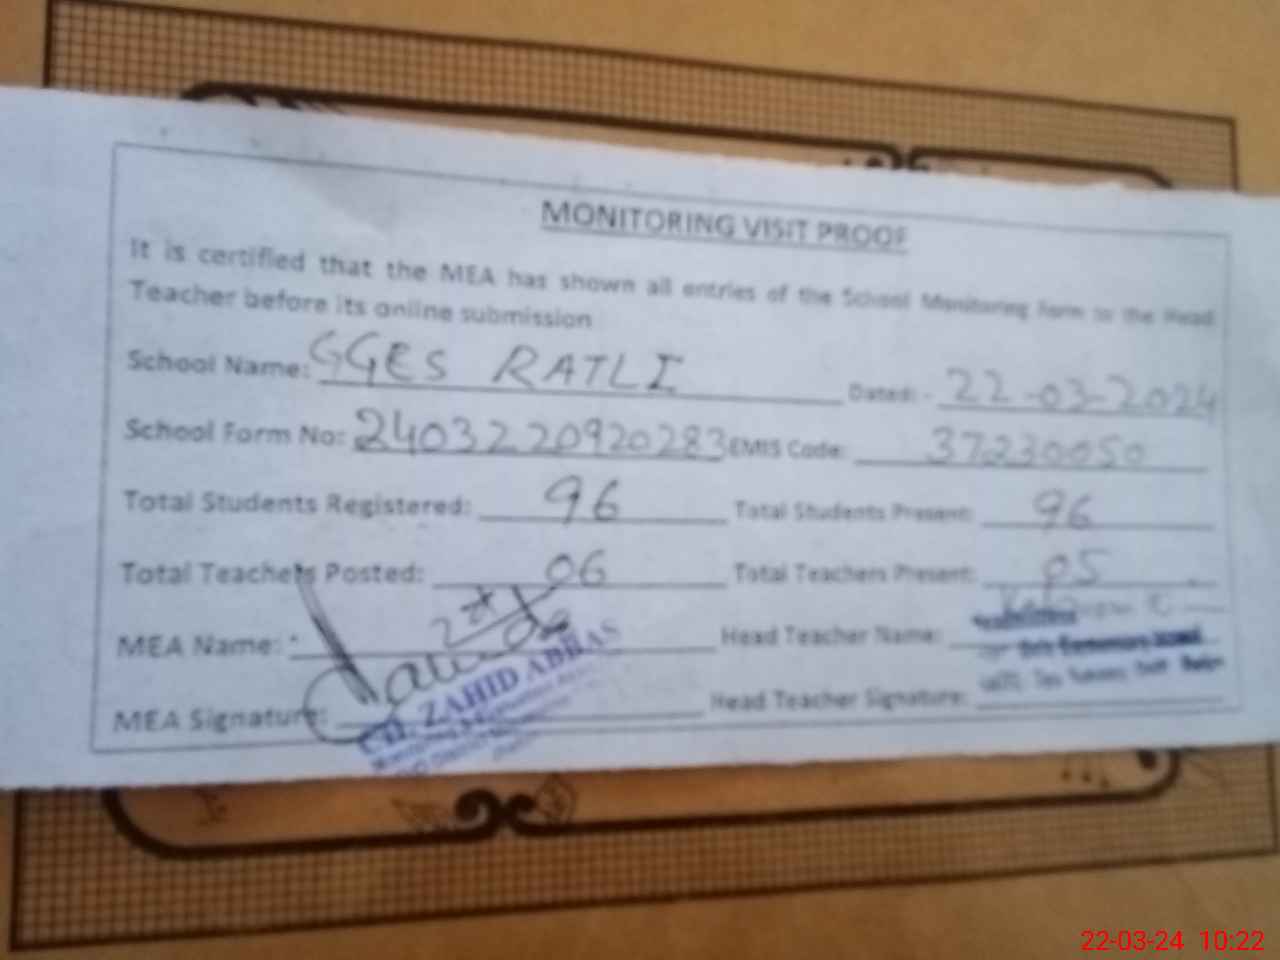 MONITORING VISIT PROOF
It is certified that the MEA has shown all entries of the School Monitoring Form to the Head
Teacher before its online submission
School Name: GGES RATLI Dated: - 22-03-2024
School Form No: 2403220920283 EMIS Code: 37230050
Total Students Registered: 96 Total Students Present: 96
Total Teachers Posted: 06 Total Teachers Present: 05
MEA Name: Head Teacher Name:
Girls Elementary School
MEA Signature: Head Teacher Signature:
CH. ZAHID ABBAS
22-03-24 10:22